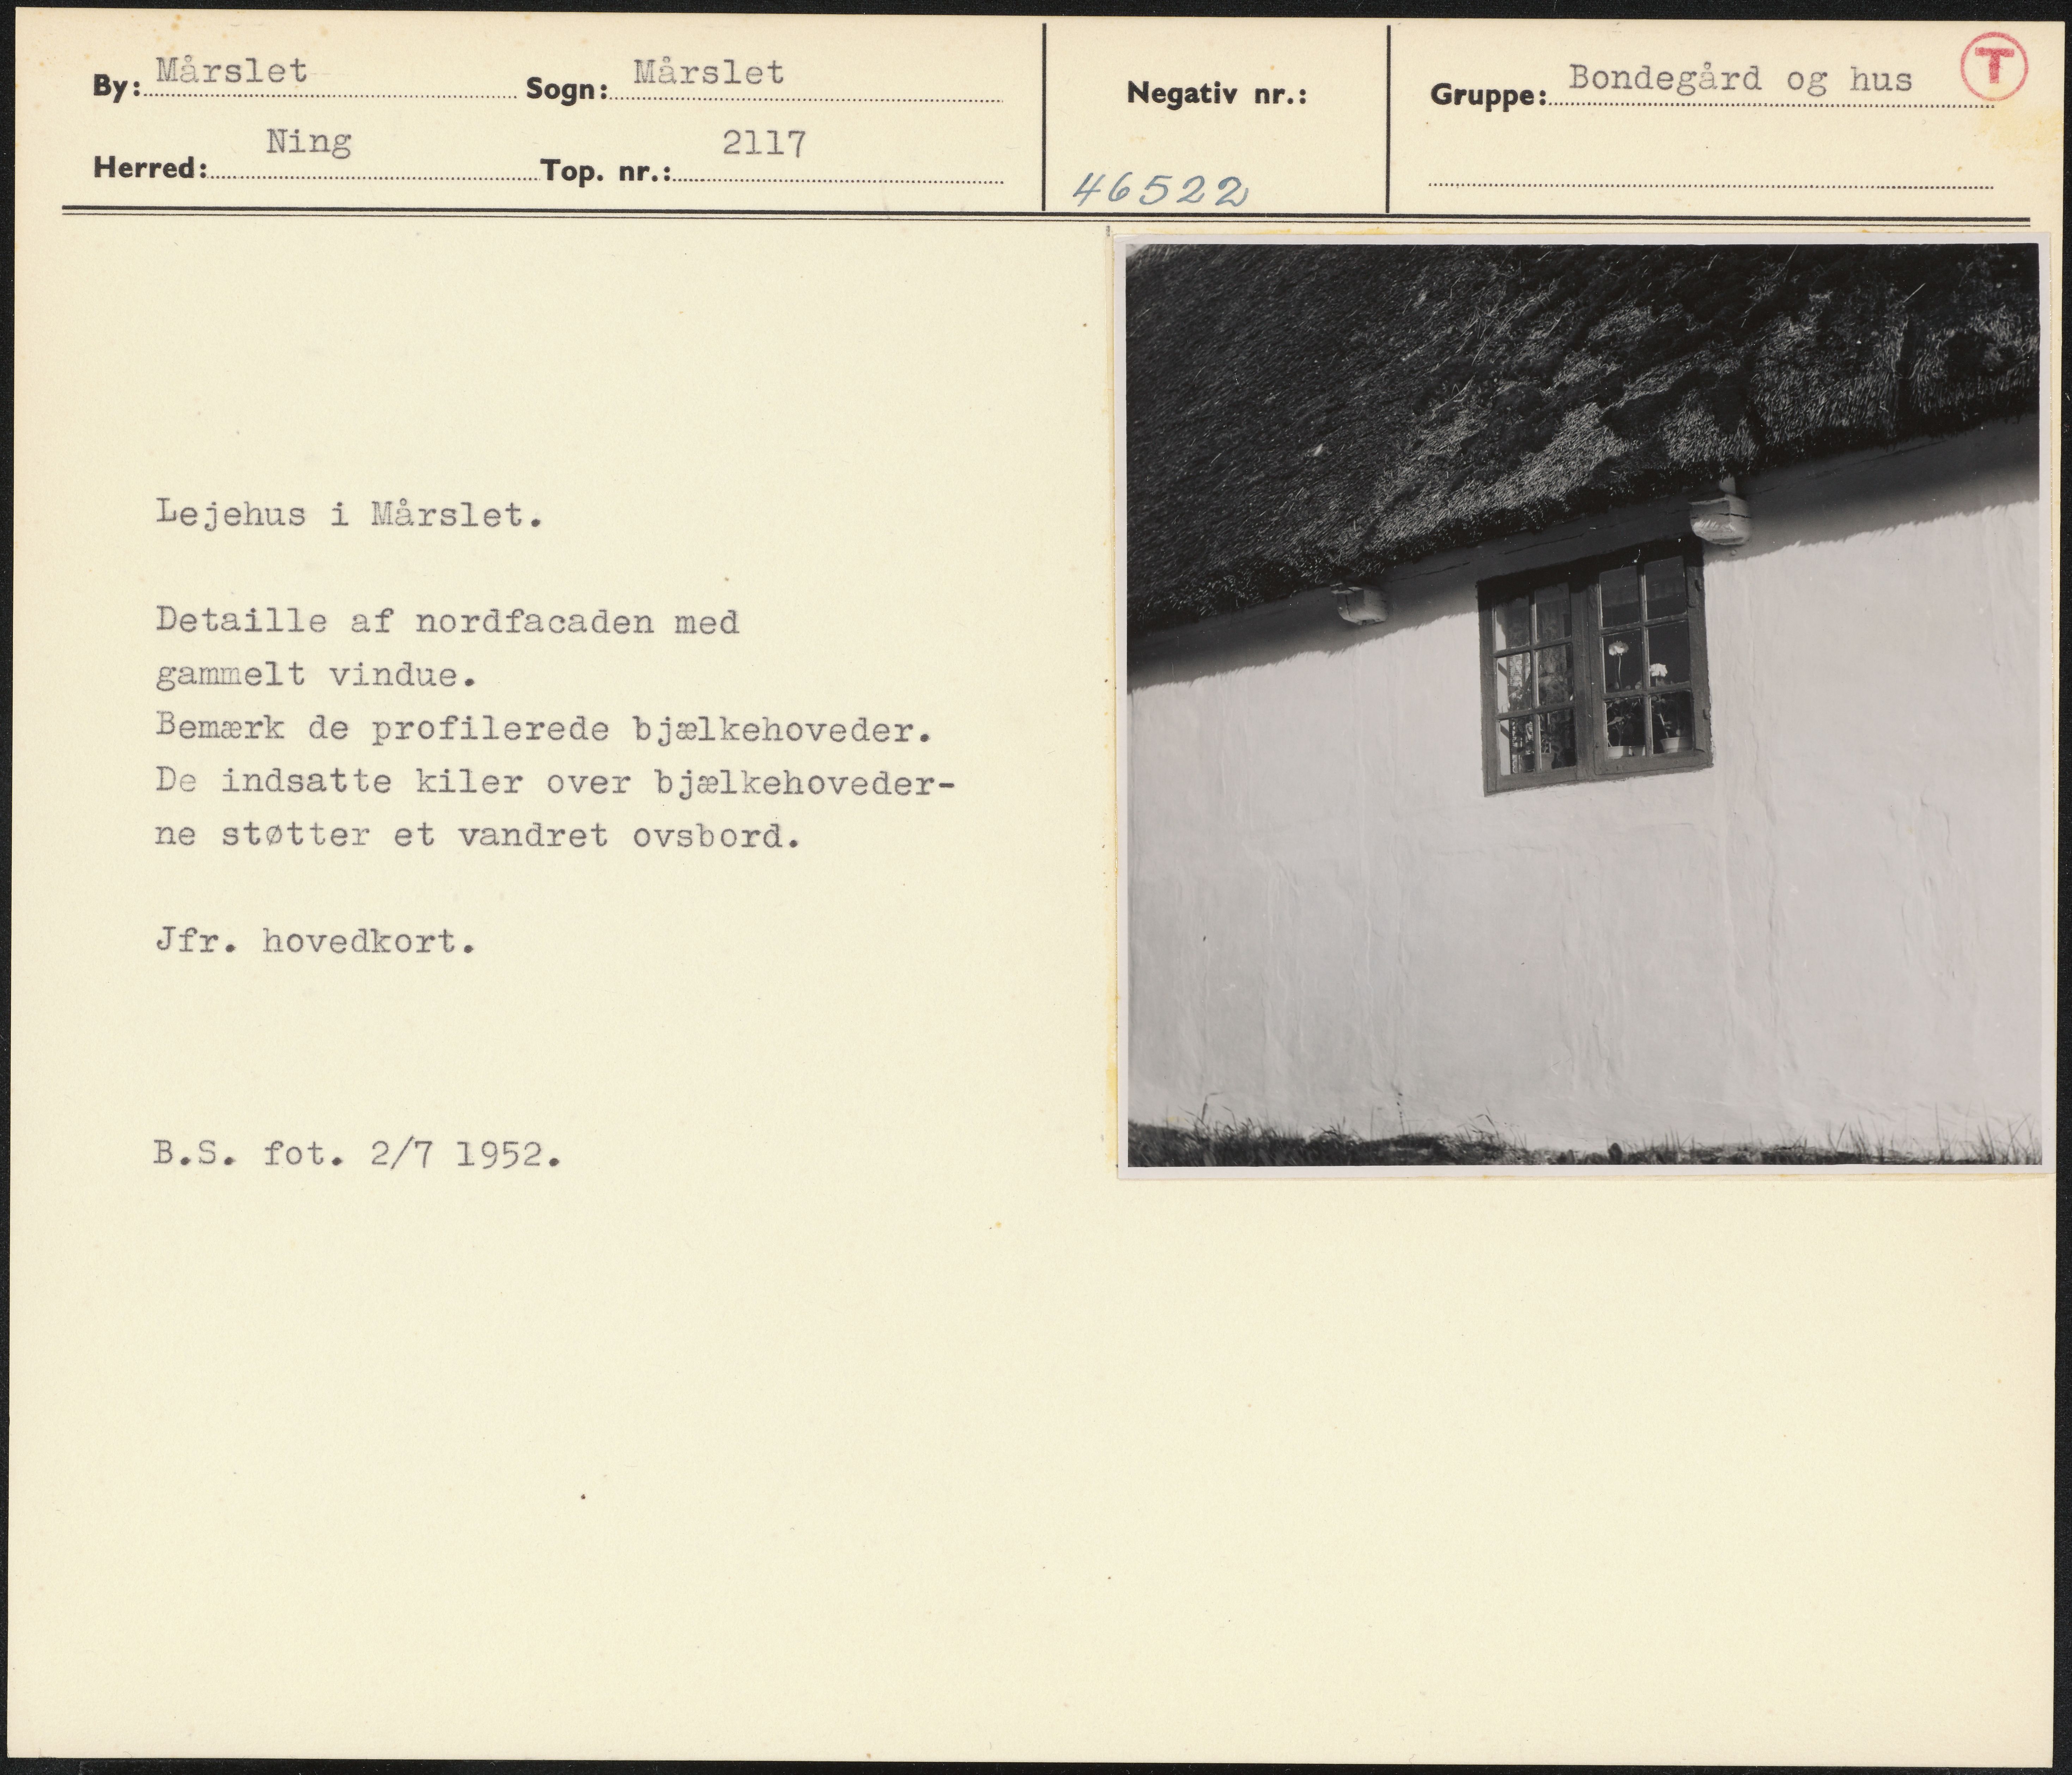 By: Mårslet Sogn: Mårslet
Herred: Ning Top. nr.: 2117
Negativ nr.:
46522
Gruppe: Bondegård og hus
T
Lejehus i Mårslet.
Detaille af nordfacaden med
gammelt vindue.
Bemærk de profilerede bjælkehoveder.
De indsatte kiler over bjælkehoveder-
ne støtter et vandret ovsbord.
Jfr. hovedkort.
B.S. fot. 2/7 1952.